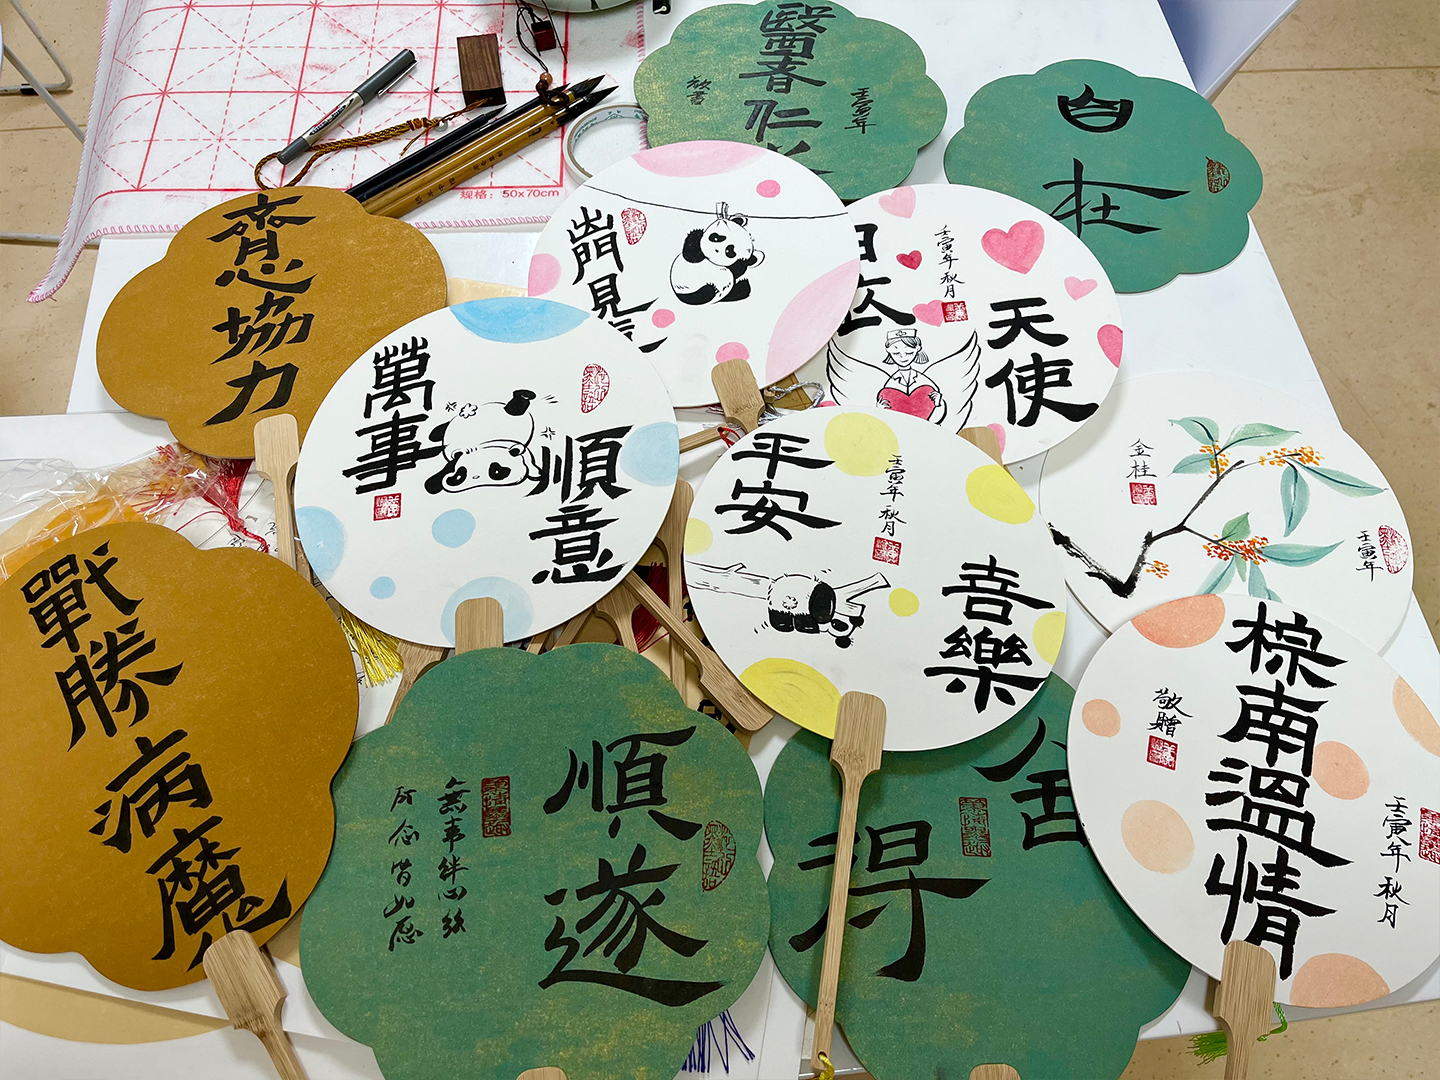 醫者仁心
敬書
壬寅年
自在
规格：50x70cm
齊心協力
開見
白衣
天使
壬寅年秋月
萬事
順意
平安
壬寅年秋月
喜樂
金桂
壬寅年
戰勝病魔
順遂
無事絆心弦
所念皆如愿
舍得
棕南溫情
敬贈
壬寅年秋月